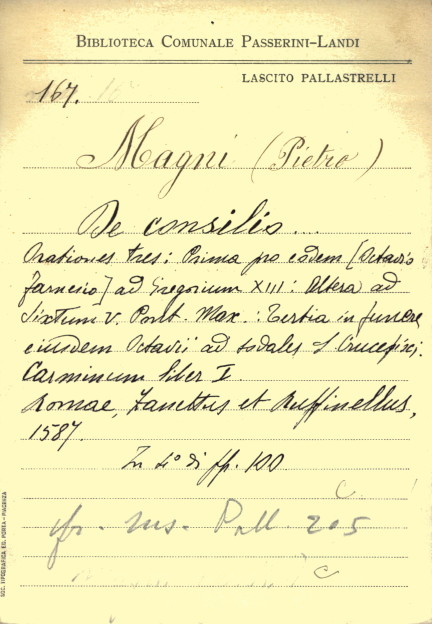 BIBLIOTECA COMUNALE PASSERINI-LANDI
LASCITO PALLASTRELLI
167.
Magni (Pietro)
De consilio...
Orationes tres: Prima pro eodem [Octavio
Farnesio] ad Gregorium XIII: Altera ad
Sixtum V. Pont. Max.: Tertia in funere
eiusdem Octavii ad sodales S Crucefixi.
Carminum liber I.
Romae, Zanettus et Ruffinellus,
1587.
In 4° di ff. 100
C.
fr. Ms. Pall. 205
C
SOC. TIPOGRAFICA ED. PORTA - PIACENZA